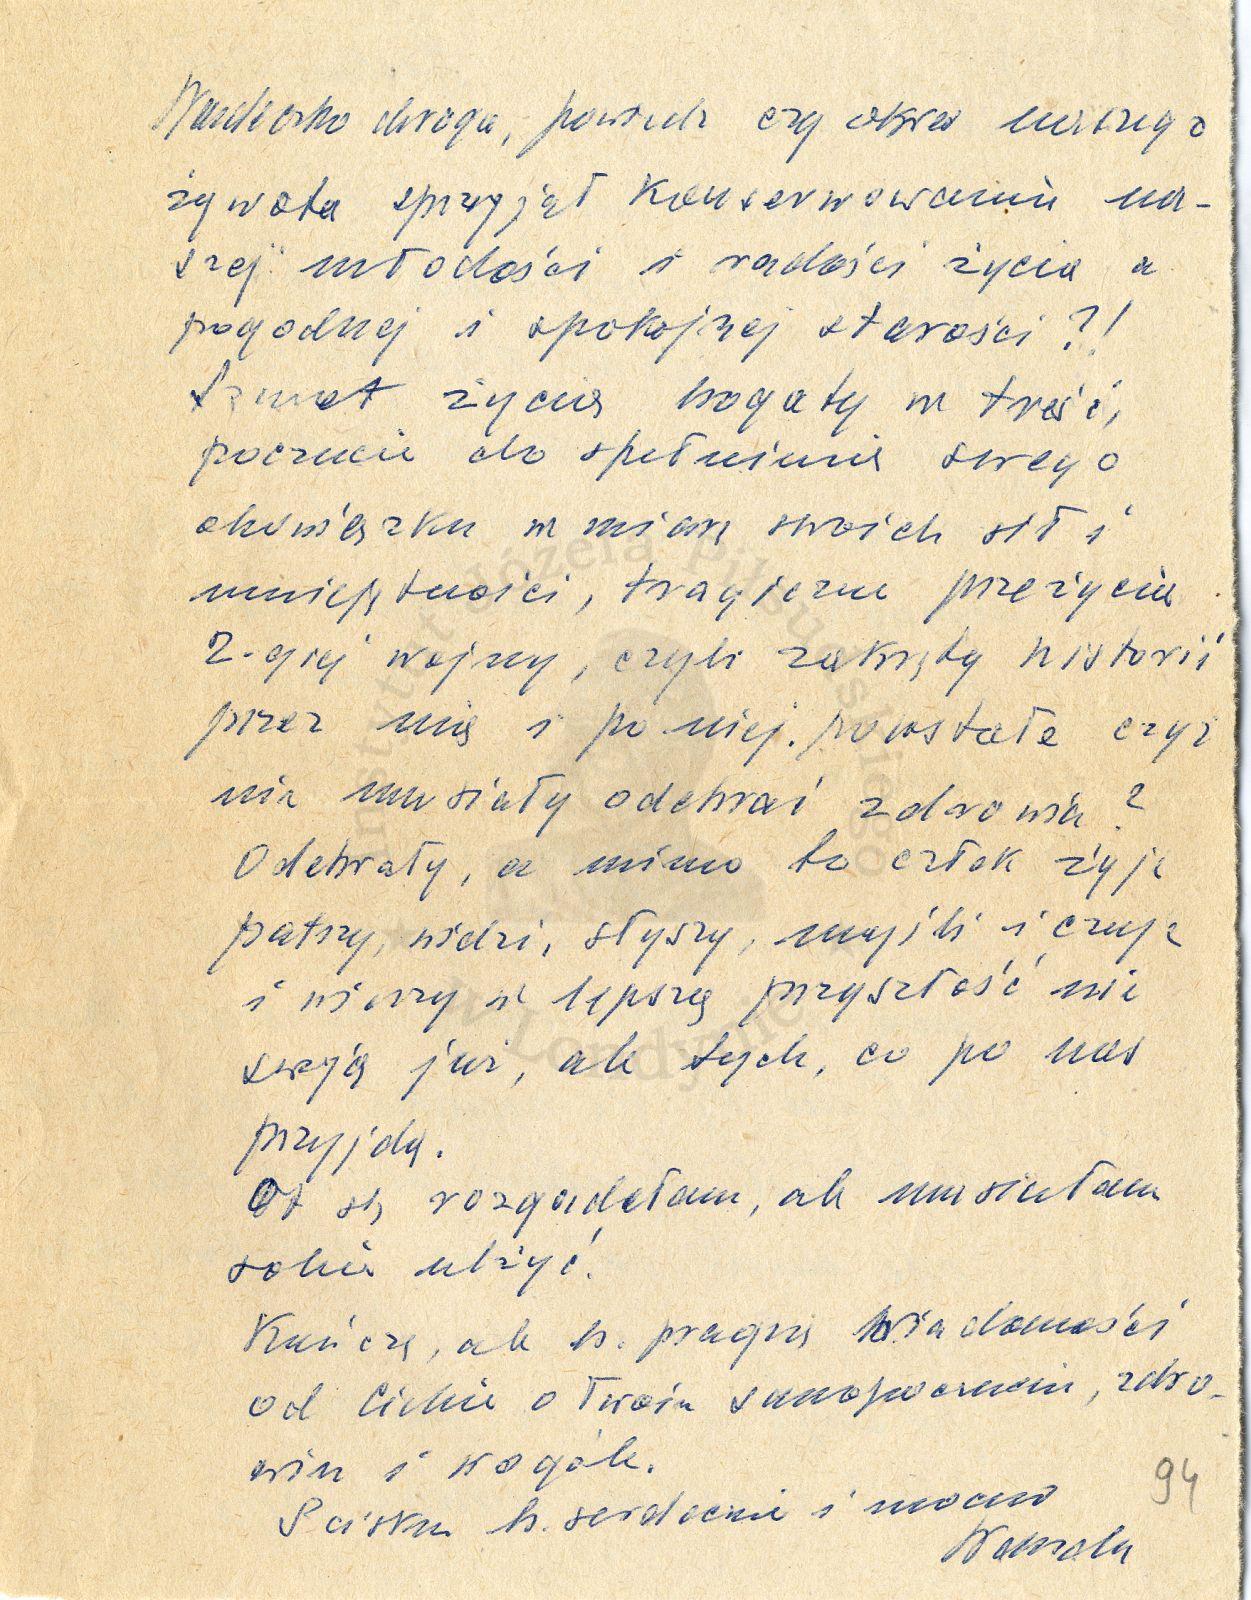 Wandeczko droga, powiedz czy okres naszego
żywota sprzyjał konserwowaniu na-
szej młodości i radości życia a
pogodnej i spokojnej starości?!
Szmat życia bogaty w treść,
poczucie do spełnienia swego
obowiązku w miarę swoich sił i
umiejętności, tragiczne przeżycia
2-giej wojny, czyli zakręty historii
przez nią i po niej. powstałe czyż
nie musiały odebrać zdrowia?
Odebrały, a mimo to człek żyje
patrzy, widzi, słyszy, myśli i czuje
i wierzy w lepszą przyszłość nie
swoją już, ale tych, co po nas
przyjdą.
Ot się rozgadałam, ale musiałam
sobie ulżyć.
Kończę, ale b. pragnę wiadomości
od Ciebie o Twoim samopoczuciu, zdro-
wiu i wogóle.
Ściskam b. serdecznie i mocno
94
Instytut Józefa Piłsudskiego
w Londynie